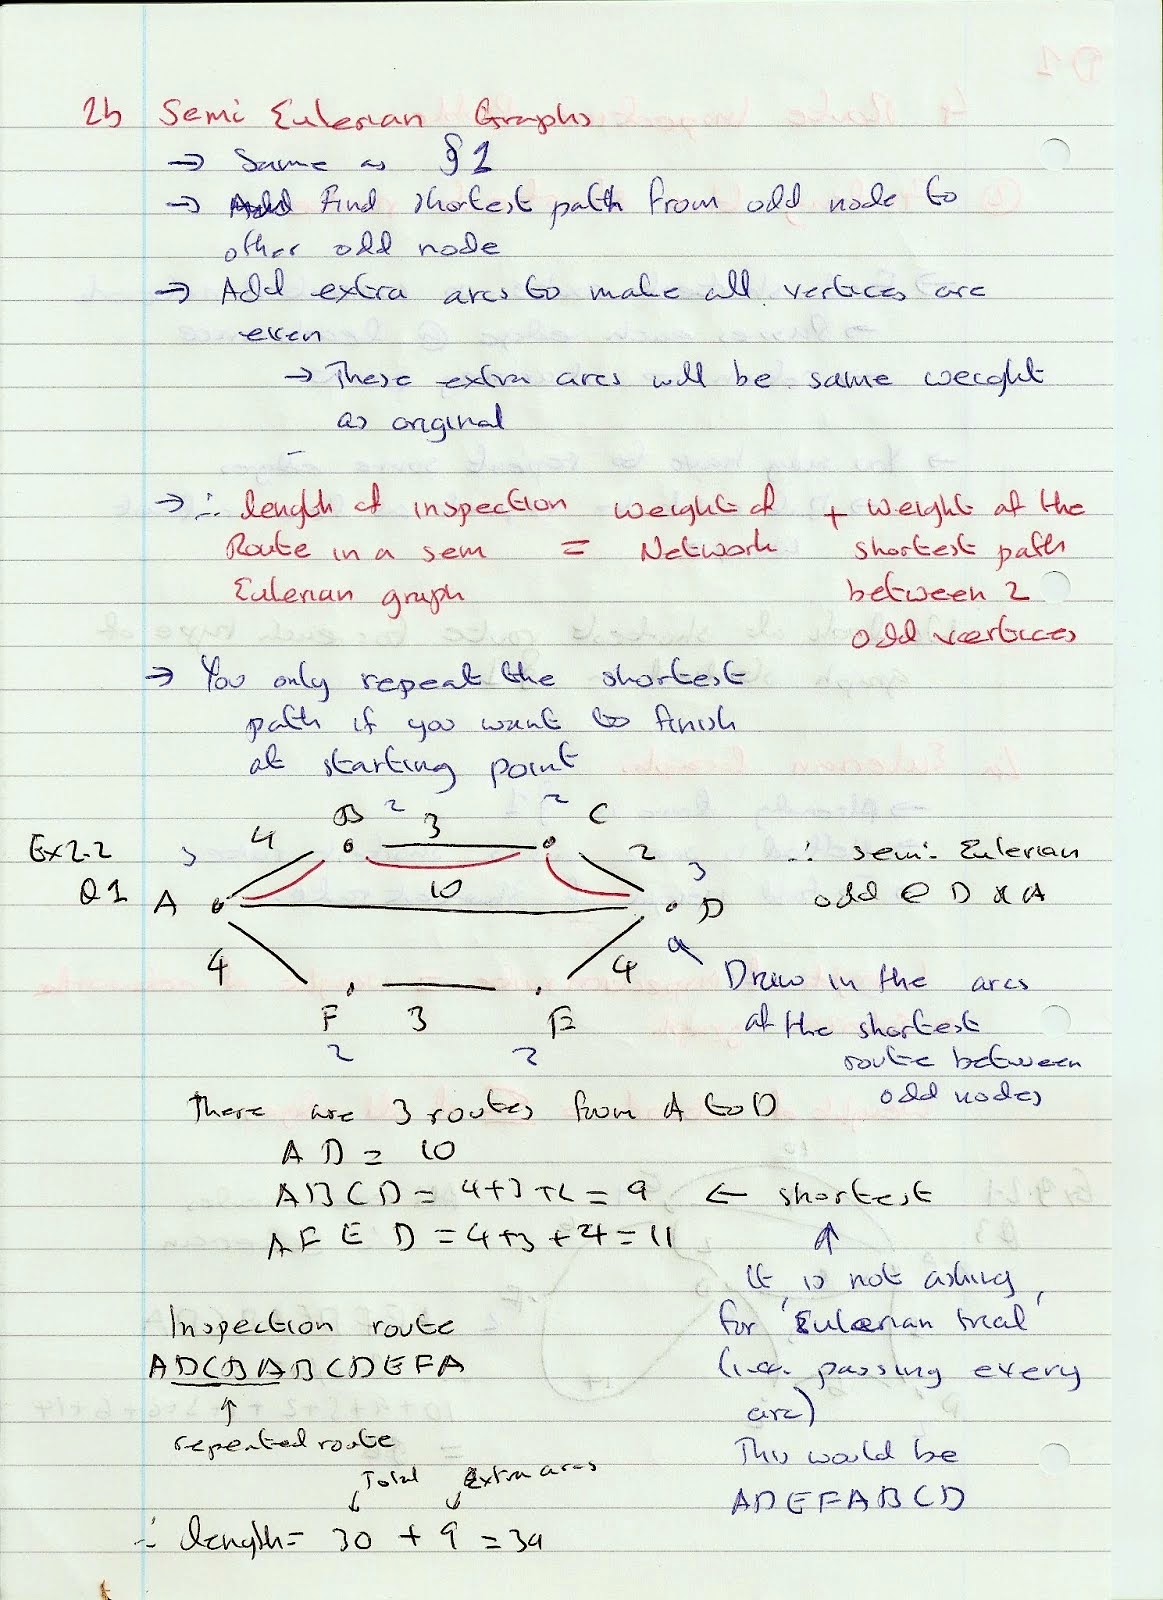 2b Semi Eulerian Graphs
→ Same as §1
→ Find shortest path from odd node to
other odd node
→ Add extra arcs to make all vertices are
even
→ These extra arcs will be same weight
as original
→ ∴ length of inspection weight of + weight of the
Route in a sem = Network shortest path
Eulerian graph between 2
odd vertices
→ You only repeat the shortest
path if you want to finish
at starting point
B 2 3 2 C
Ex2.2 3 4 2 3 ∴ semi-Eulerian
Q1 A 10 D odd @ D & A
4 4 9 Draw in the arcs
F 3 E of the shortest
2 2 route between
odd nodes
There are 3 routes from A to D
AD = 10
ABCD = 4+3+2 = 9 ← shortest
AFED = 4+3+4 = 11 ↑
It is not asking
Inspection route for 'Eulerian trial'
ADCBABCDEFA (i.e. passing every
↑ arc)
repeated route This would be
Total Extra arcs ADEFABCD
∴ length = 30 + 9 = 39